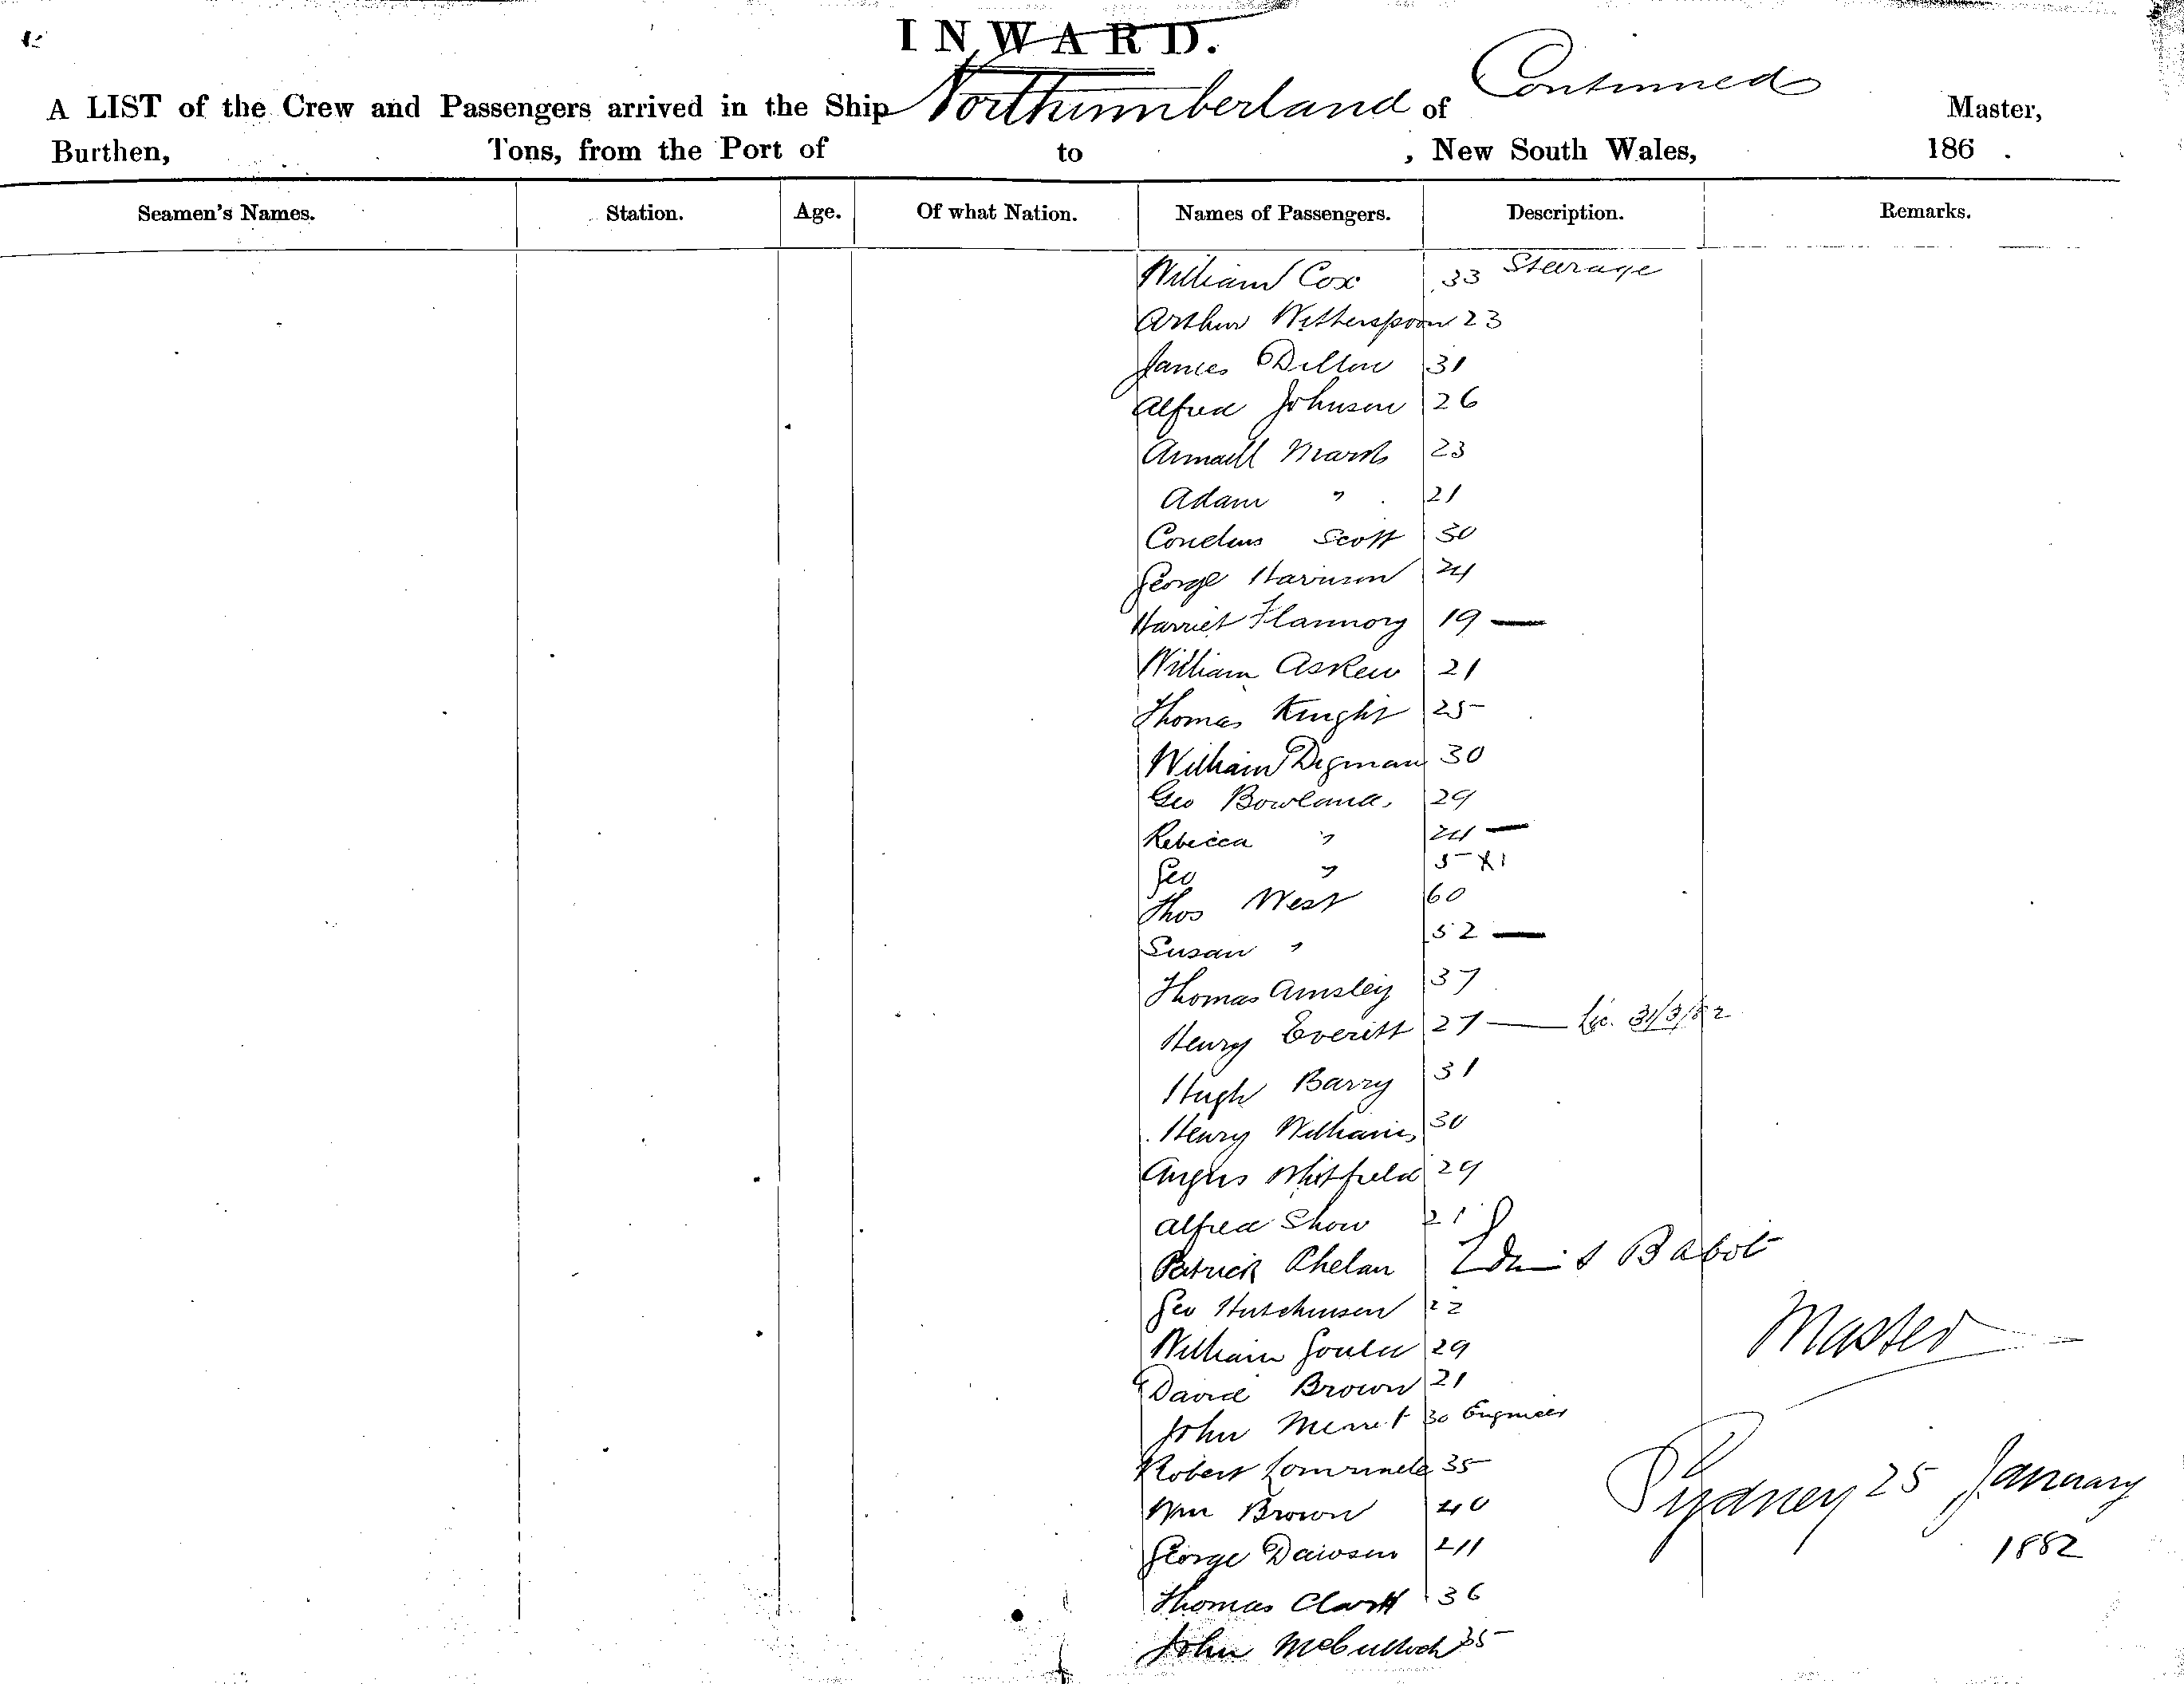 INWARD.
Continued
A LIST of the Crew and Passengers arrived in the Ship Northumberland of Master,
Burthen, Tons, from the Port of to , New South Wales, 186 .
Seamen's Names. Station. Age. Of what Nation. Names of Passengers. Description. Remarks.
William Cox 33 Steerage
Arthur Witherspoon 23
James Dillon 31
Alfred Johnson 26
Marsh 23
Adam " 21
Scott 30
George Harrison 24
Harriet Flannory 19 —
William Askew 21
Thomas Knight 25
William Digman 30
Geo Bowland. 29
Rebecca " 24 —
Geo " 5 X1
Thos West 60
Susan " 52 —
Thomas Ainsley 37
Henry Everitt 27 — Lic. 31/3/82
Hugh Barry 31
Henry Williams 30
Angus Whitfield 29
Alfred Show 21
Patrick Phelan
Babot
Geo Hutchinson 22
Master
William Gould 29
David Brown 21
John Merret 30 Engineer
Robert 35
Sydney 25 January
Wm Brown 40
1882
George Dawson 41
Thomas Clark 36
John McCulloch 35